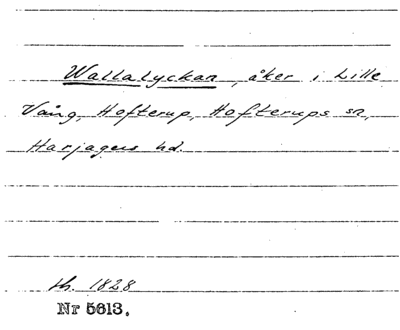 Wallalyckan, åker i Lille
Vång, Hofterup, Hofterups sn,
Harjagers hd.
th. 1828
Nr 5613.